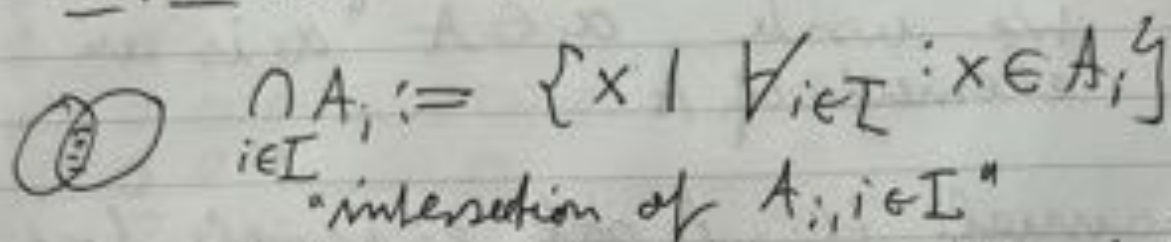 ⋂ A_i := {x | ∀_{i∈I} : x ∈ A_i}
i∈I
"intersection of A_i, i∈I"